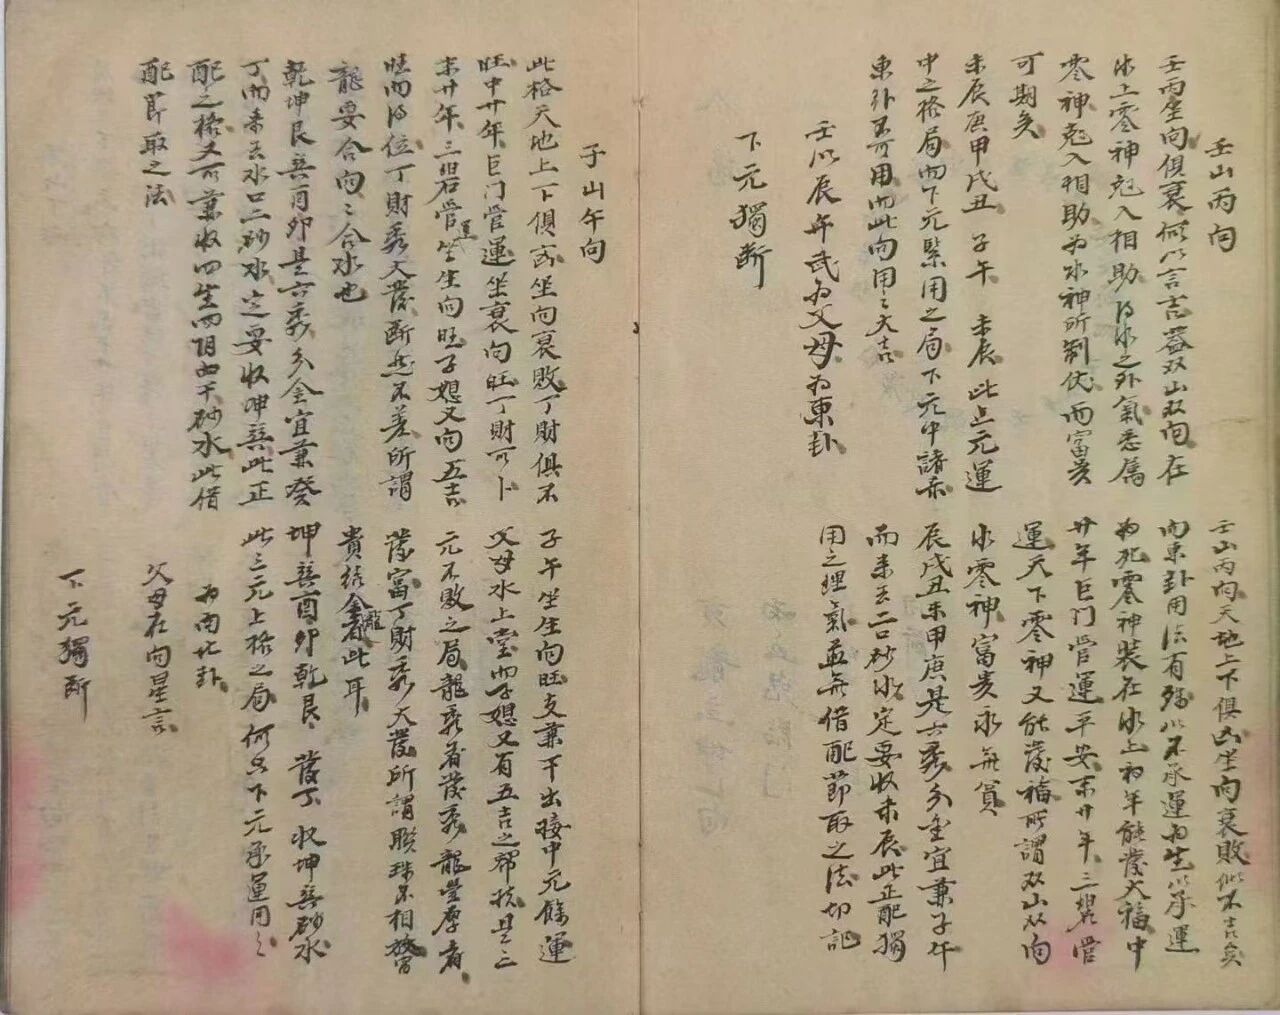 壬山丙向
壬丙坐向俱衰何以言吉蓋双山双向在
水上零神克入相助得水之外氣悉属
零神克入相助为水神所制伏而富贵
可期矣
未辰庚甲戌丑 子午 未辰此上元運
中之格局而下元緊用之局下元中諸赤
東卦不可用而此向用之大吉
壬以辰午武为父母为東卦
下元獨斷
壬山丙向天地上下俱凶坐向衰敗似不吉矣
向東卦用法有殊以不承運为生以承運
为死零神装在水上初年能發大福中
廿年巨门管運平安末廿年三碧管
運天下零神又能發福所謂双山双向
水零神富贵永無貧
辰戌丑未甲庚是六秀分金宜兼子午
而来去二口砂水定要收未辰此正配獨
用之理氣並無借配節取之法切記
子山午向
此格天地上下俱凶坐向衰敗丁財俱不
旺中廿年巨门管運坐衰向旺丁財可卜
末廿年三碧管運坐生向旺子媳又向五吉
旺而得位丁財秀大發断然不差所謂
龍要合向向合水也
乾坤艮巽酉卯是六秀分金宜兼癸
丁而来去水口二砂水定要收坤巽此正
配之格又可兼收四生四阴四干砂水此借
配節取之法
子午坐生向旺支兼干出睃中元條運
父母水上堂而子媳又有五吉之帮扶是三
元不敗之局龍秀者發秀龍豊厚者
發富丁財秀大發所謂聯珠不相放當
貴结金龍者此耳
坤巽酉卯乾艮發丁收坤巽砂水
此三元上格之局何只下元承運用之
为南北卦
父母在向星言
下元獨断